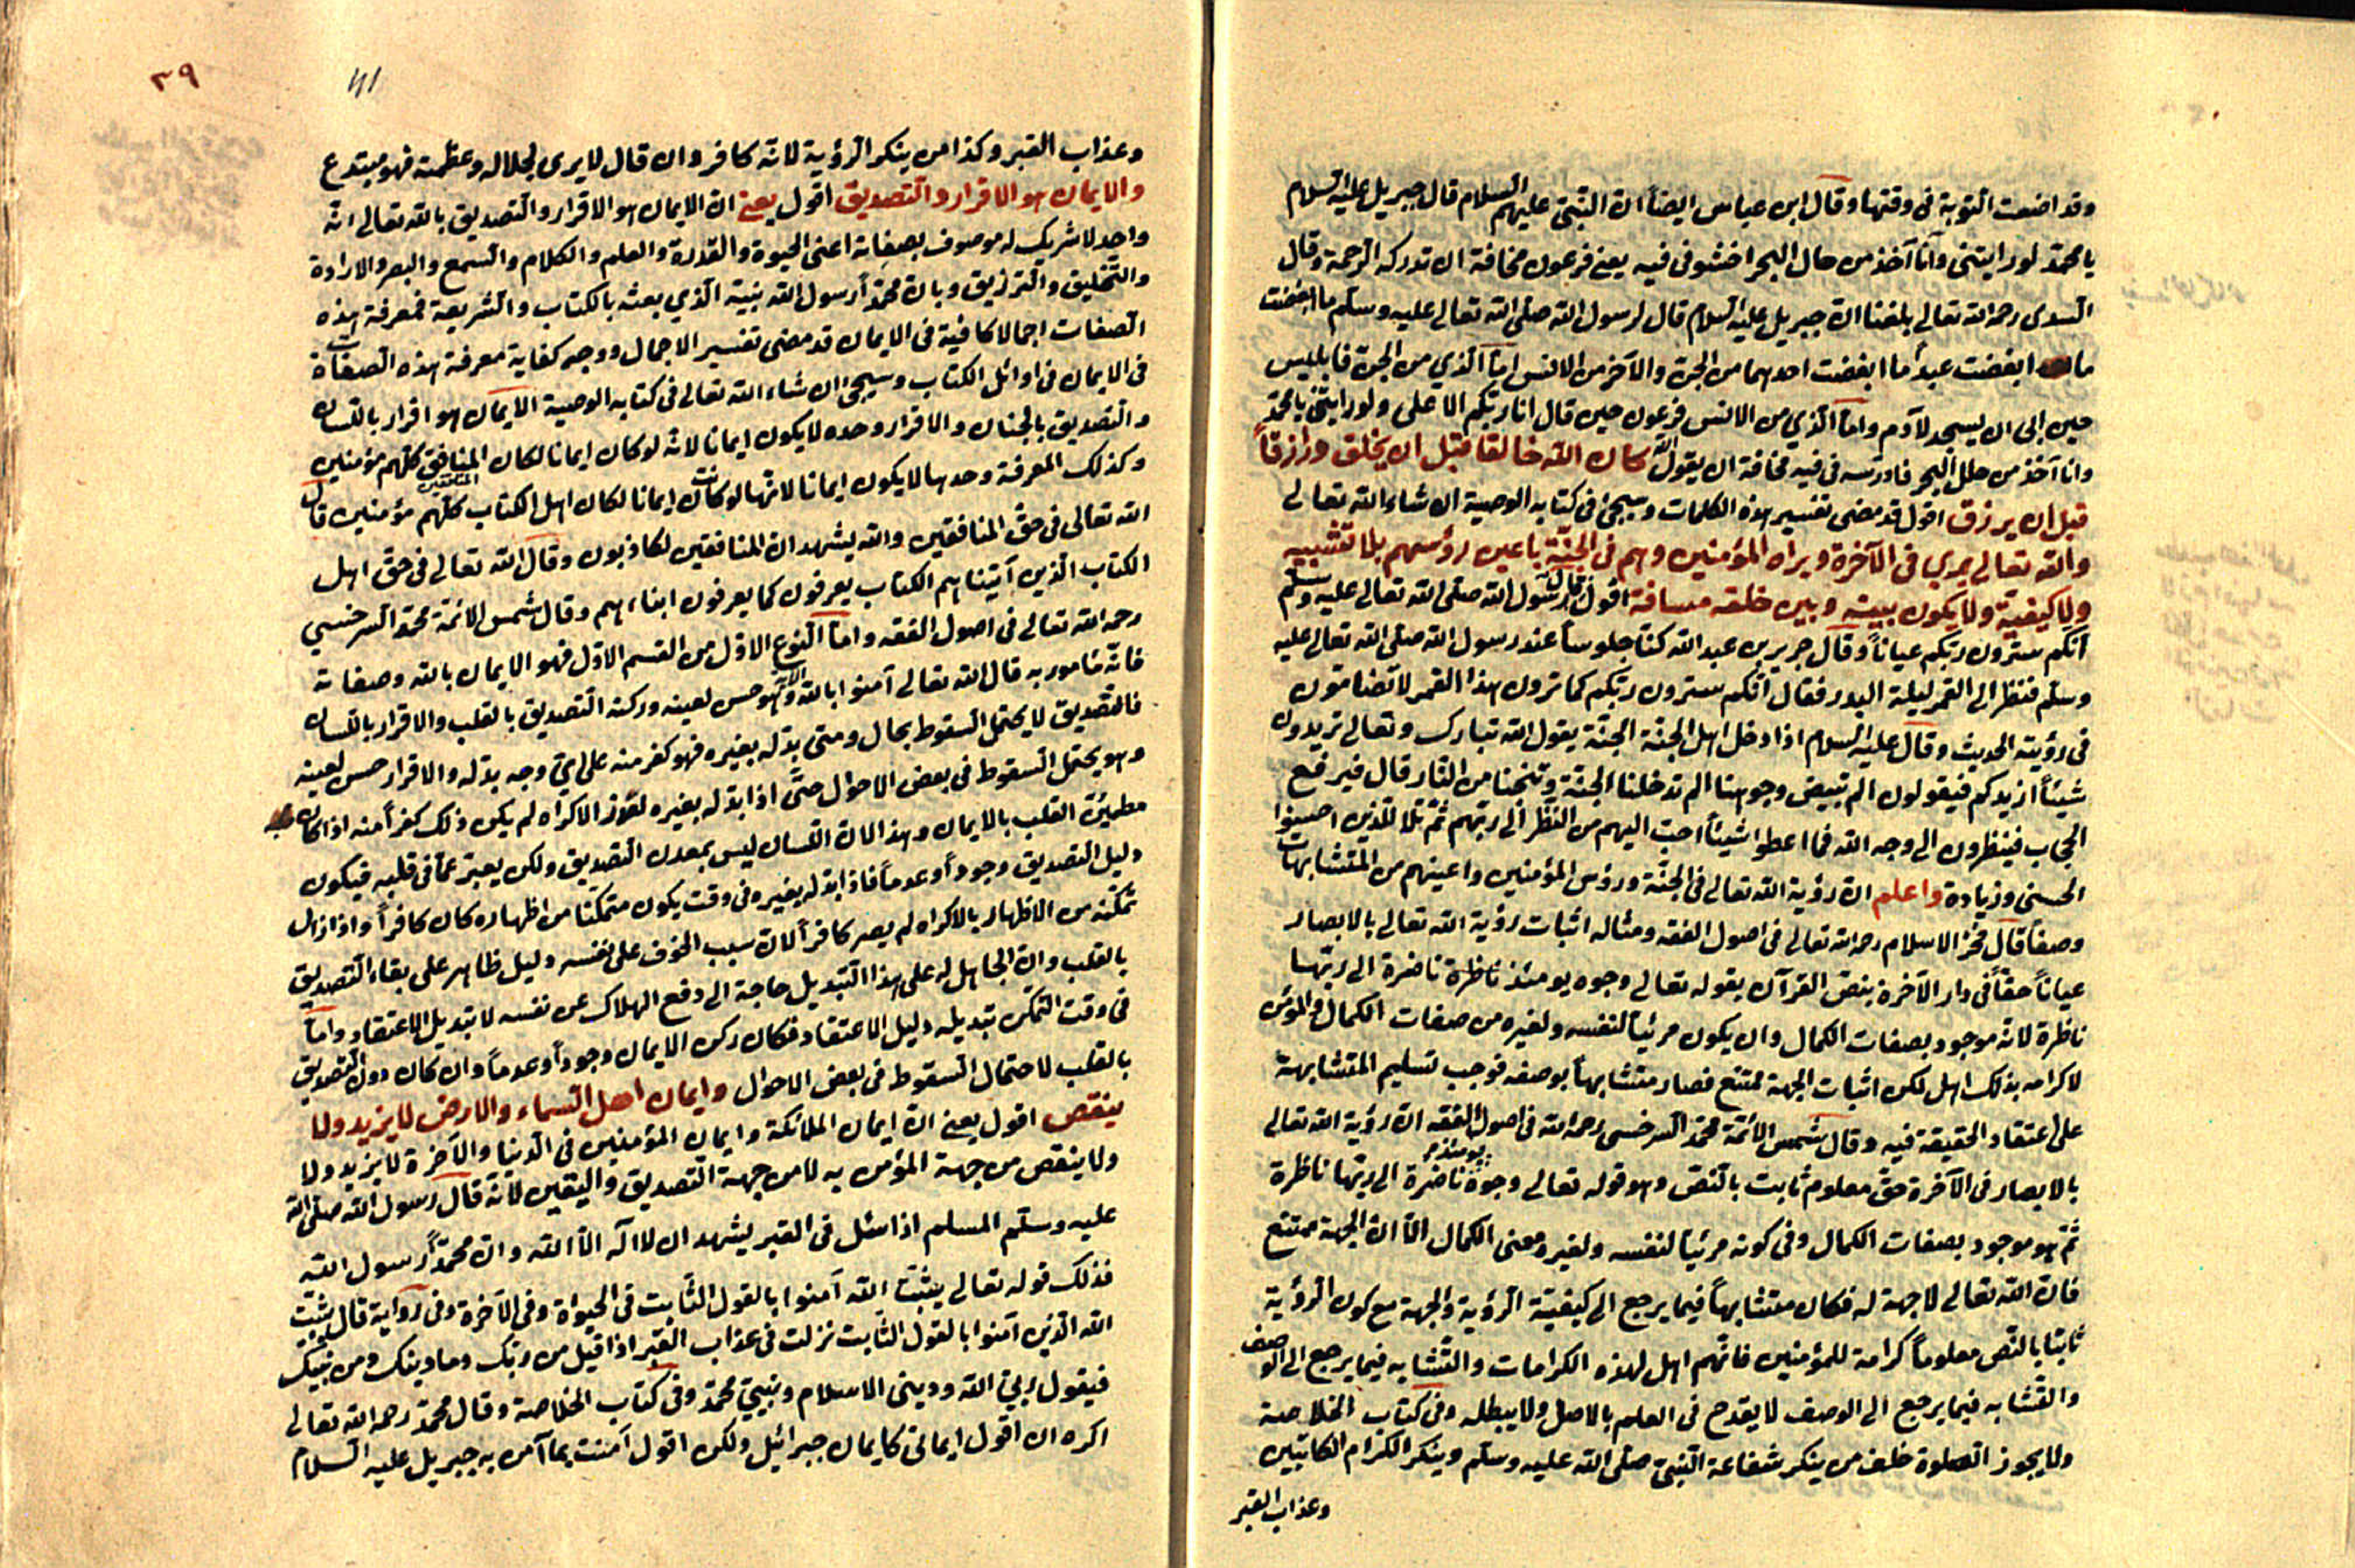 وقد اضعت التوبة فى وقتها وقال ابن عباس ايضاً ان النبى عليهم السلام قال جبريل عليه السلام
يا محمد لو رايتنى وانا آخذ من حال البحر احشو فى فيه يعنى فرعون مخافة ان تدركه الرحمة وقال
السدى رحمه الله تعالى بلغنا ان جبريل عليه السلام قال لرسول الله صلى الله تعالى عليه وسلم ما ابغضت
ابغضت عبداً ما ابغضت احدهما من الجن والآخر من الانس اما الذي من الجن فابليس
حين ابى ان يسجد لآدم واما الذي من الانس فرعون حين قال انا ربكم الاعلى ولو رايتنى يا محمد
وانا آخذ من حال البحر فادرسه فى فيه مخافة ان يقول كان الله خالقا قبل ان يخلق ورازقاً
قبل ان يرزق اقول قد مضى تفسير هذه الكلمات وسيجئ فى كتابه الوصية ان شاء الله تعالى
والله تعالى يرى فى الآخرة ويراه المؤمنين وهم فى الجنة باعين رؤسهم بلا تشبيه
ولا كيفية ولا يكون بينه وبين خلقه مسافة اقول قال رسول الله صلى الله تعالى عليه وسلم
انكم سترون ربكم عياناً وقال جرير بن عبد الله كنا جلوسا عند رسول الله صلى الله تعالى عليه
وسلم فنظر الى القمر ليلة البدر فقال انكم سترون ربكم كما ترون هذا القمر لا تضامون
فى رؤيته الحديث وقال عليه السلام اذا دخل اهل الجنة الجنة يقول الله تبارك وتعالى تريدون
شيئاً ازيدكم فيقولون الم تبيض وجوهنا الم تدخلنا الجنة وتنجنا من النار قال فيرفع
الحجاب فينظرون الى وجه الله فما اعطوا شيئاً احب اليهم من النظر الى ربهم ثم تلا للذين احسنوا
الحسنى وزيادة واعلم ان رؤية الله تعالى فى الجنة ورؤس المؤمنين واعينهم من المتشابهات
وصفا قال فخر الاسلام رحمه الله تعالى فى اصول الفقه ومثاله اثبات رؤية الله تعالى بالابصار
عياناً حقاً فى دار الآخرة بنص القرآن بقوله تعالى وجوه يومئذ ناظرة ناضرة الى ربها
ناظرة لانه موجود بصفات الكمال وان يكون مرئياً لنفسه ولغيره من صفات الكمال والمؤمن
لاكرامه بذلك اهل لكن اثبات الجهة ممتنع فصار متشابهاً بوصفه فوجب تسليم المتشابهة
على اعتقاد الحقيقة فيه وقال شمس الائمة محمد السرخسى رحمه الله فى اصول الفقه ان رؤية الله تعالى
بالابصار فى الآخرة حق معلوم ثابت بالنص وهو قوله تعالى وجوه يومئذ ناضرة الى ربها ناظرة
ثم هو موجود بصفات الكمال وفى كونه مرئياً لنفسه ولغيره معنى الكمال الا ان الجهة ممتنع
فان الله تعالى لا جهة له فكان متشابهاً فيما يرجع الى كيفية الرؤية والجهة مع كون الرؤية
ثابتا بالنص معلوماً كرامة للمؤمنين فانهم اهل لهذه الكرامات والتشابه فيما يرجع الى الوصف
والتشابه فيما يرجع الى الوصف لا يقدح فى العلم بالاصل ولا يبطله وفى كتاب الخلاصة
ولا يجوز الصلوة خلف من ينكر شفاعة النبى صلى الله عليه وسلم وينكر الكرام الكاتبين
وعذاب القبر
٣٩
41
وعذاب القبر وكذا من ينكر الرؤية لانه كافر وان قال لا يرى لجلاله وعظمته فهو مبتدع
والايمان هو الاقرار والتصديق اقول يعنى ان الايمان هو الاقرار والتصديق بالله تعالى انه
واحد لا شريك له موصوف بصفاته اعنى الحيوة والقدرة والعلم والكلام والسمع والبصر والارادة
والتخليق والترزيق وبان محمداً رسول الله نبيه الذي بعثه بالكتاب والشريعة فمعرفة هذه
الصفات اجمالا كافية فى الايمان قد مضى تفسير الاجمال ووجه كفاية معرفة هذه الصفات
فى الايمان فى اوائل الكتاب وسيجئ ان شاء الله تعالى فى كتابه الوصية الايمان هو اقرار باللسان
والتصديق بالجنان والاقرار وحده لا يكون ايمانا لانه لو كان ايمانا لكان المنافق كلهم مؤمنين
وكذلك المعرفة وحدها لا يكون ايمانا لانها لو كانت ايمانا لكان اهل الكتاب كلهم مؤمنين قال
الله تعالى فى حق المنافقين والله يشهد ان المنافقين لكاذبون وقال الله تعالى فى حق اهل
الكتاب الذين آتيناهم الكتاب يعرفون كما يعرفون ابناءهم وقال شمس الائمة محمد السرخسي
رحمه الله تعالى فى اصول الفقه واما النوع الاول من القسم الاول فهو الايمان بالله وصفاته
فانه مامور به قال الله تعالى آمنوا بالله وهو حسن لعينه وركنه التصديق بالقلب والاقرار باللسان
فالتصديق لا يحتمل السقوط بحال ومتى بدله بغيره فهو كفر منه على اي وجه بدله والاقرار حسن لعينه
وهو يحتمل السقوط فى بعض الاحوال حتى اذا بدله بغيره لعذر الاكراه لم يكن ذلك كفراً منه اذا كان
مطمئن القلب بالايمان وهذا لان اللسان ليس بمعدن التصديق ولكن يعبر عما فى قلبه فيكون
دليل التصديق وجوداً وعدماً فاذا بدله بغيره فى وقت يكون متمكنا من اظهاره كان كافراً واذا زال
تمكنه من الاظهار بالاكراه لم يصر كافراً لان سبب الخوف على نفسه دليل ظاهر على بقاء التصديق
بالقلب وان الحامل له على هذا التبديل حاجة الى دفع الهلاك عن نفسه لا تبديل الاعتقاد واما
فى وقت التمكن تبديله دليل الاعتقاد فكان ركن الايمان وجوداً وعدماً وان كان دون التصديق
بالقلب لاحتمال السقوط فى بعض الاحوال وايمان اهل السماء والارض لا يزيد ولا
ينقص اقول يعنى ان ايمان الملائكة وايمان المؤمنين فى الدنيا والآخرة لا يزيد ولا
ولا ينقص من جهة المؤمن به لا من جهة التصديق واليقين لانه قال رسول الله صلى الله
عليه وسلم المسلم اذا سئل فى القبر يشهد ان لا اله الا الله وان محمداً رسول الله
فذلك قوله تعالى يثبت الله آمنوا بالقول الثابت فى الحيواة وفى الآخرة وفى رواية قال يثبت
الله الذين آمنوا بالقول الثابت نزلت فى عذاب القبر اذا قيل من ربك وما دينك ومن نبيك
فيقول ربى الله ودينى الاسلام ونبيى محمد وفى كتاب الخلاصة وقال محمد رحمه الله تعالى
اكره ان اقول ايمانى كايمان جبرائيل ولكن اقول آمنت بما آمن به جبريل عليه السلام